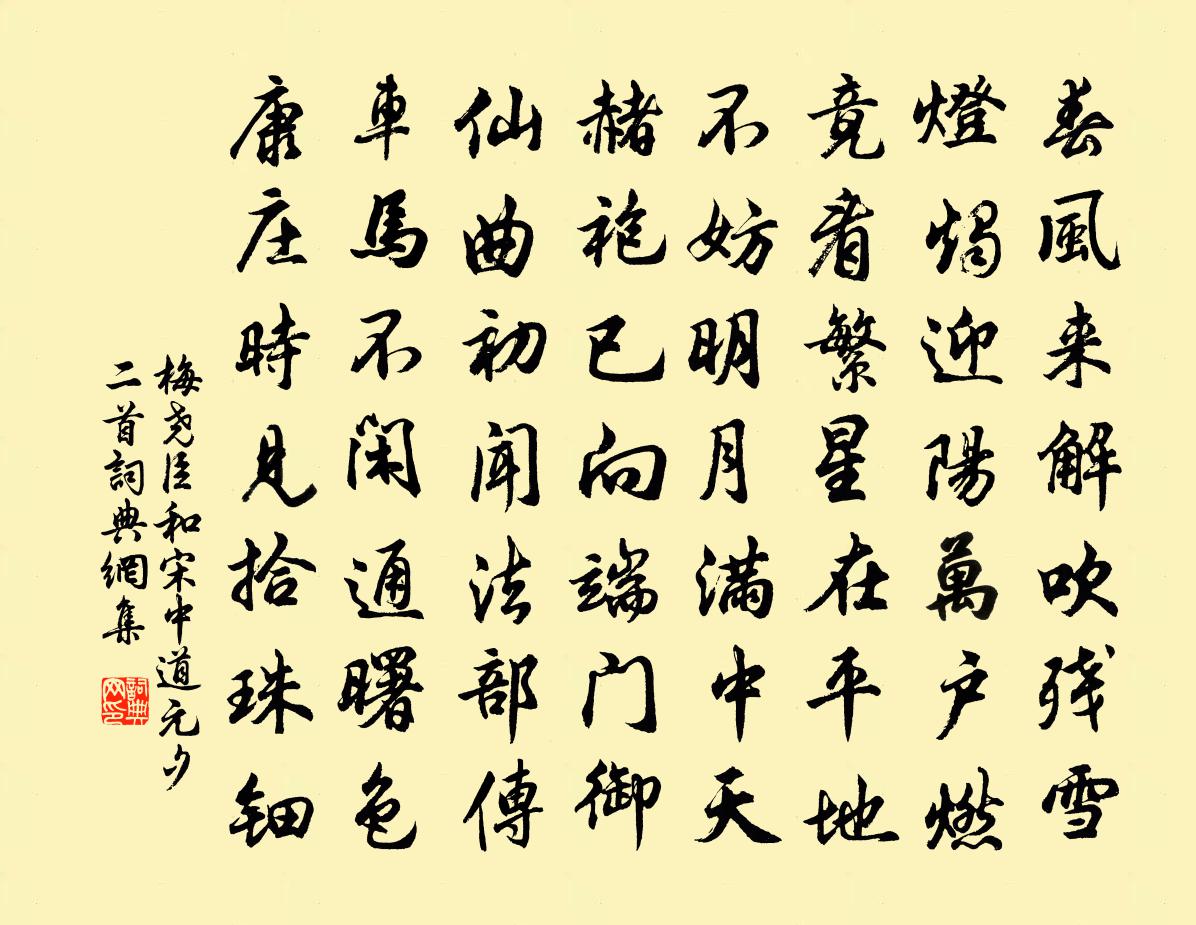 春風来解吹残雪
燈燭迎陽萬户燃
竟看繁星在平地
不妨明月満中天
赭袍已向端门御
仙曲初闻法部傳
車馬不閑通曙色
康庄時見拾珠钿
梅尧臣和宋中道元夕
二首詞典網集
詞典
网印